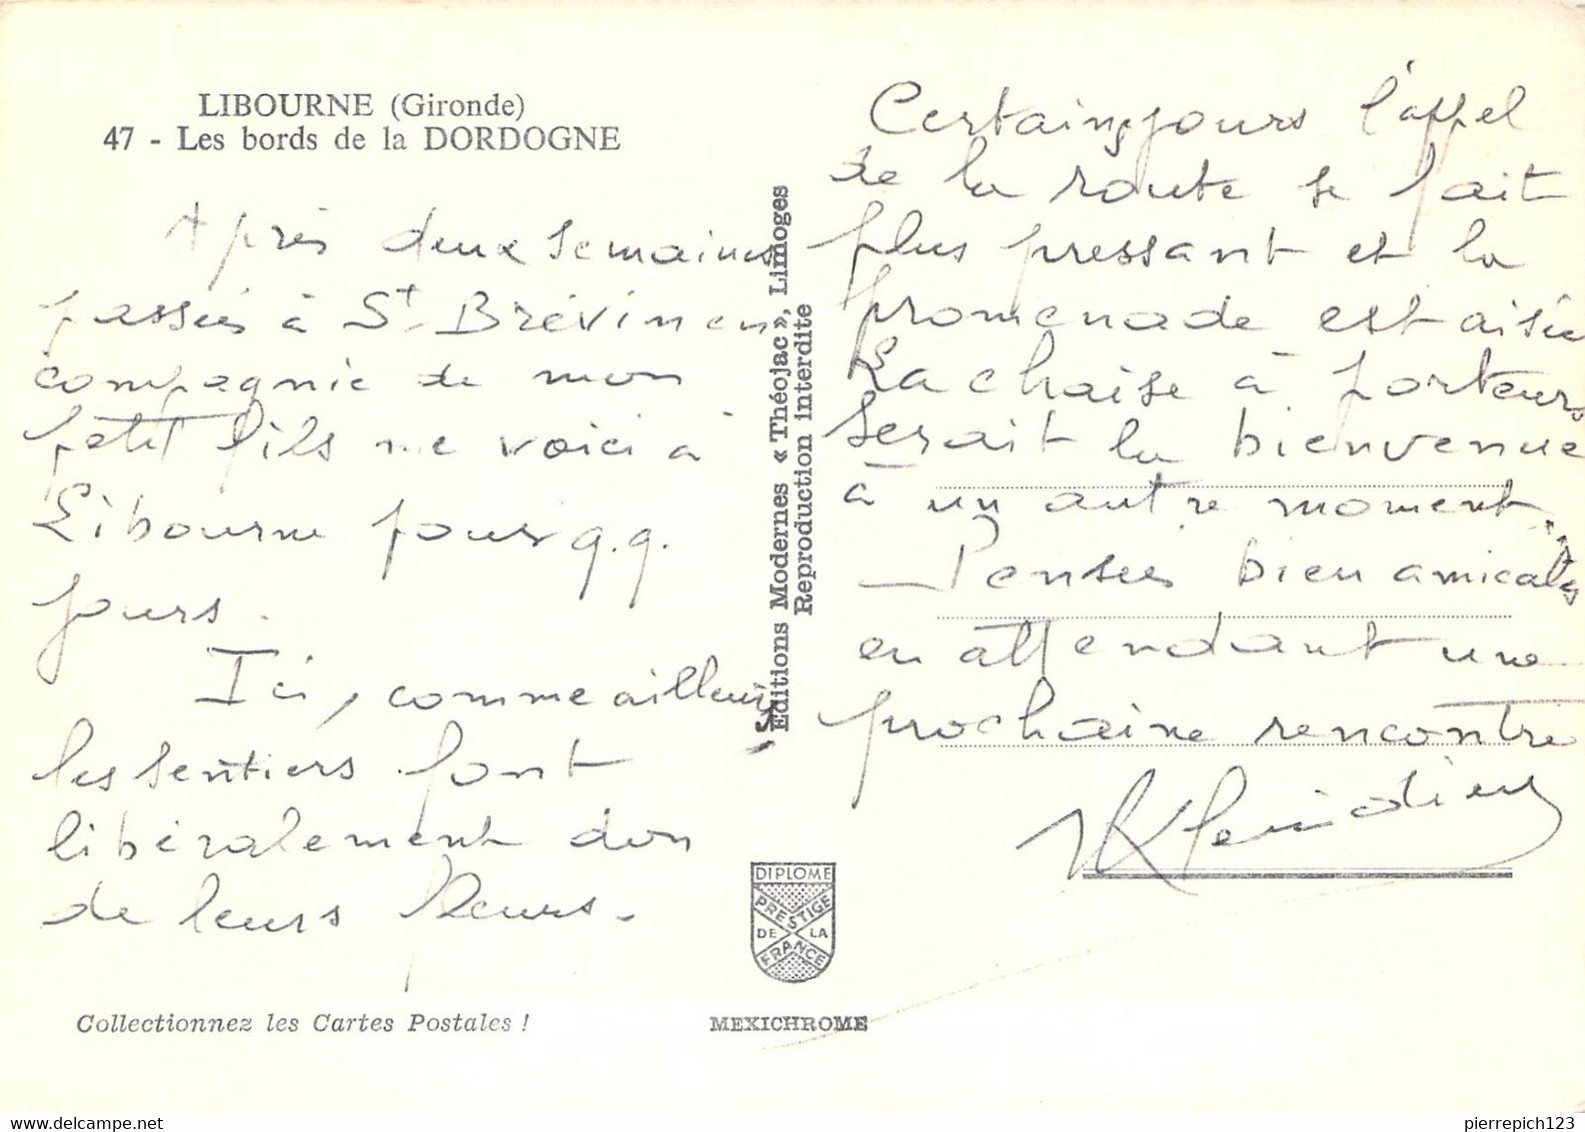 LIBOURNE (Gironde)
47 - Les bords de la DORDOGNE
Après deux semaines
passées à St. Brévin en
compagnie de mon
petit fils me voici à
Libourne pour q.q.
jours.
Ici, comme ailleurs,
les sentiers font
libéralement don
de leurs fleurs.
Collectionnez les Cartes Postales !
Editions Modernes « Théojac », Limoges
Reproduction interdite
DIPLOME
PRESTIGE
DE LA
FRANCE
MEXICHROME
Certains jours l'appel
de la route se fait
plus pressant et la
promenade est aisée
La chaise à porteurs
serait la bienvenue
à un autre moment.
— Pensées bien amicales
en attendant une
prochaine rencontre
pierrepich123